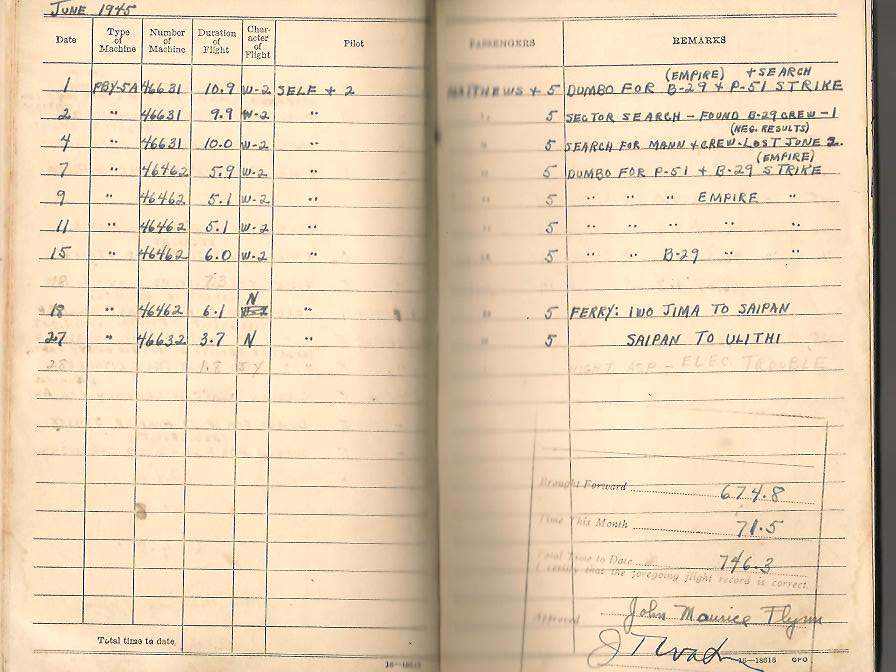 JUNE 1945
Date Type of Machine Number of Machine Duration of Flight Char- acter of Flight Pilot PASSENGERS REMARKS
(EMPIRE) + SEARCH
1 PBY-5A 46631 10.9 W-2 SELF + 2 MATTHEWS + 5 DUMBO FOR B-29 + P-51 STRIKE
2 " 46631 9.9 W-2 " " 5 SECTOR SEARCH - FOUND B-29 CREW - 1
(NEG. RESULTS)
4 " 46631 10.0 W-2 " " 5 SEARCH FOR MANN + CREW - LOST JUNE 2.
(EMPIRE)
7 " 46462 5.9 W-2 " " 5 DUMBO FOR P-51 + B-29 STRIKE
9 " 46462 5.1 W-2 " " 5 " " " EMPIRE "
11 " 46462 5.1 W-2 " " 5 " " " " "
15 " 46462 6.0 W-2 " " 5 " " B-29 " "
N
18 " 46462 6.1 " " 5 FERRY: IWO JIMA TO SAIPAN
27 " 46632 3.7 N " " 5 SAIPAN TO ULITHI
28 1.8 ELEC TROUBLE
Brought Forward 674.8
Time This Month 71.5
Total Time to Date 746.3
I certify that the foregoing flight record is correct.
John Maurice Flynn
Approved
Total time to date,
16—18616 GPO